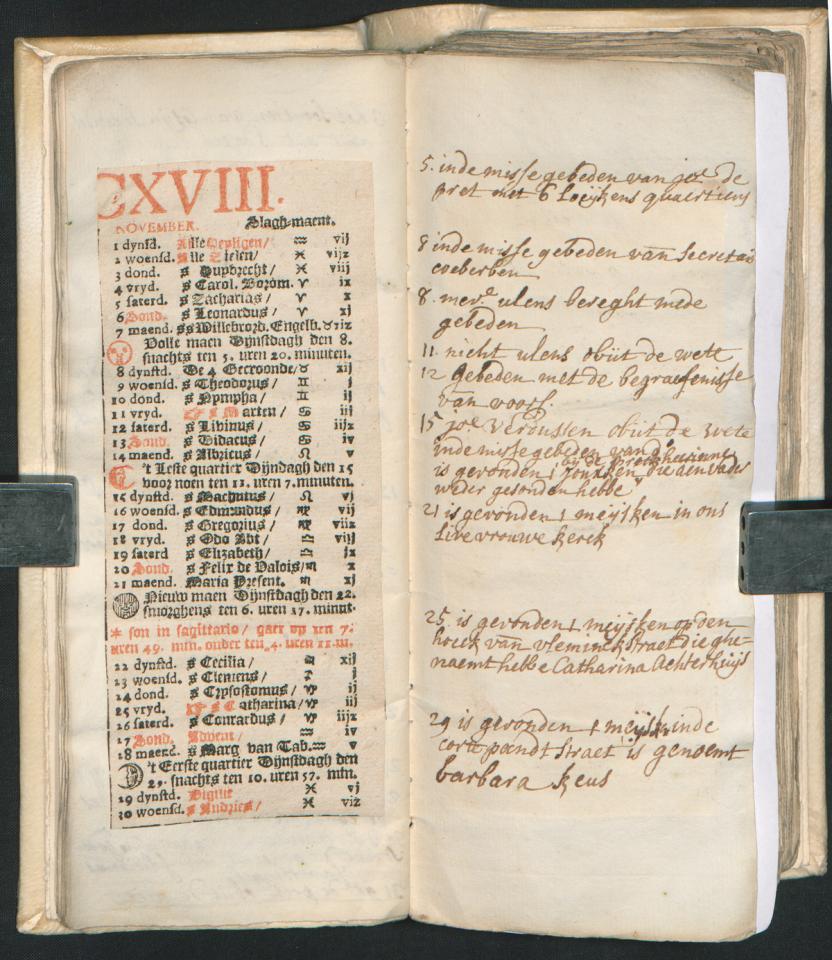 CXVIII.
NOVEMBER. Slagh-maent.
1 dynsd. Alle Heyligen/ ♒ vij
2 woensd. Alle Zielen/ ♓ viij
3 dond. s Huybrecht/ ♓ viij
4 vryd. s Carol. Borom. ♈ ix
5 saterd. s Zacharias/ ♈ x
6 Sond. s Leonardus/ ♈ xj
7 maend. ss Willebrord. Engelb. ♉ xiz
Volle maen Dijnstdagh den 8.
snachts ten 5. uren 20. minuten.
8 dynstd. De 4 Gecroonde/ ♉ xij
9 woensd. s Theodorus/ ♊ j
10 dond. s Nympha/ ♊ ij
11 vryd. s Marten/ ♋ iij
12 saterd. s Livinus/ ♋ iijz
13 Sond. s Didacus/ ♋ iv
14 maend. s Albicus/ ♌ v
't Leste quartier Dijnsdagh den 15
voor noen ten 11. uren 7. minuten.
15 dynstd. s Machutus/ ♌ vj
16 woensd. s Edmundus/ ♍ vij
17 dond. s Gregorius/ ♍ viiz
18 vryd. s Odo Abt/ ♎ viij
19 saterd s Elizabeth/ ♎ jx
20 Sond. s Felix de Valois/ ♏ x
21 maend. Maria Present. ♏ xj
Nieuw maen Dijnstdagh den 22.
smorghens ten 6. uren 17. minut.
* son in sagittario/ gaet op ten 7.
uren 49. min. onder ten 4. uren 11. m.
22 dynstd. s Cecilia/ xij
23 woensd. s Clemens/ ♐ j
24 dond. s Crysostomus/ ♑ ij
25 vryd. s Catharina/ ♑ iij
26 saterd. s Conrardus/ ♑ iijz
27 Sond. Advent/ ♒ iv
28 maend. s Marg van Sab. ♒ v
't Eerste quartier Dijnstdagh den
29. snachts ten 10. uren 57. min.
29 dynstd. Vigilie ♓ vj
30 woensd. s Andries/ ♓ viz
5. inde misse gebeden van joe de
pret met 6 loeykens quaertiers
8 inde misse gebeden van Secretais
coeberben
8. mere ulens bereght mede
gebeden
11 nicht ulens obiit de wete
12 gebeden met de begraefenisse
van voors.
15 joe verdussen obiit de wete
inde misse gebeden van do
is gevonden 1 jonxken die den vader
weder gesonden hebbe
21 is gevonden 1 meysken in ons
live vrouwe kerck
25. is gevonden 1 meysken op den
hoeck van vleminckstraet die ghe-
naemt hebbe Catharina Achterhuys
29 is gevonden 1 meysk inde
corte pandt straet is genoemt
barbara keus